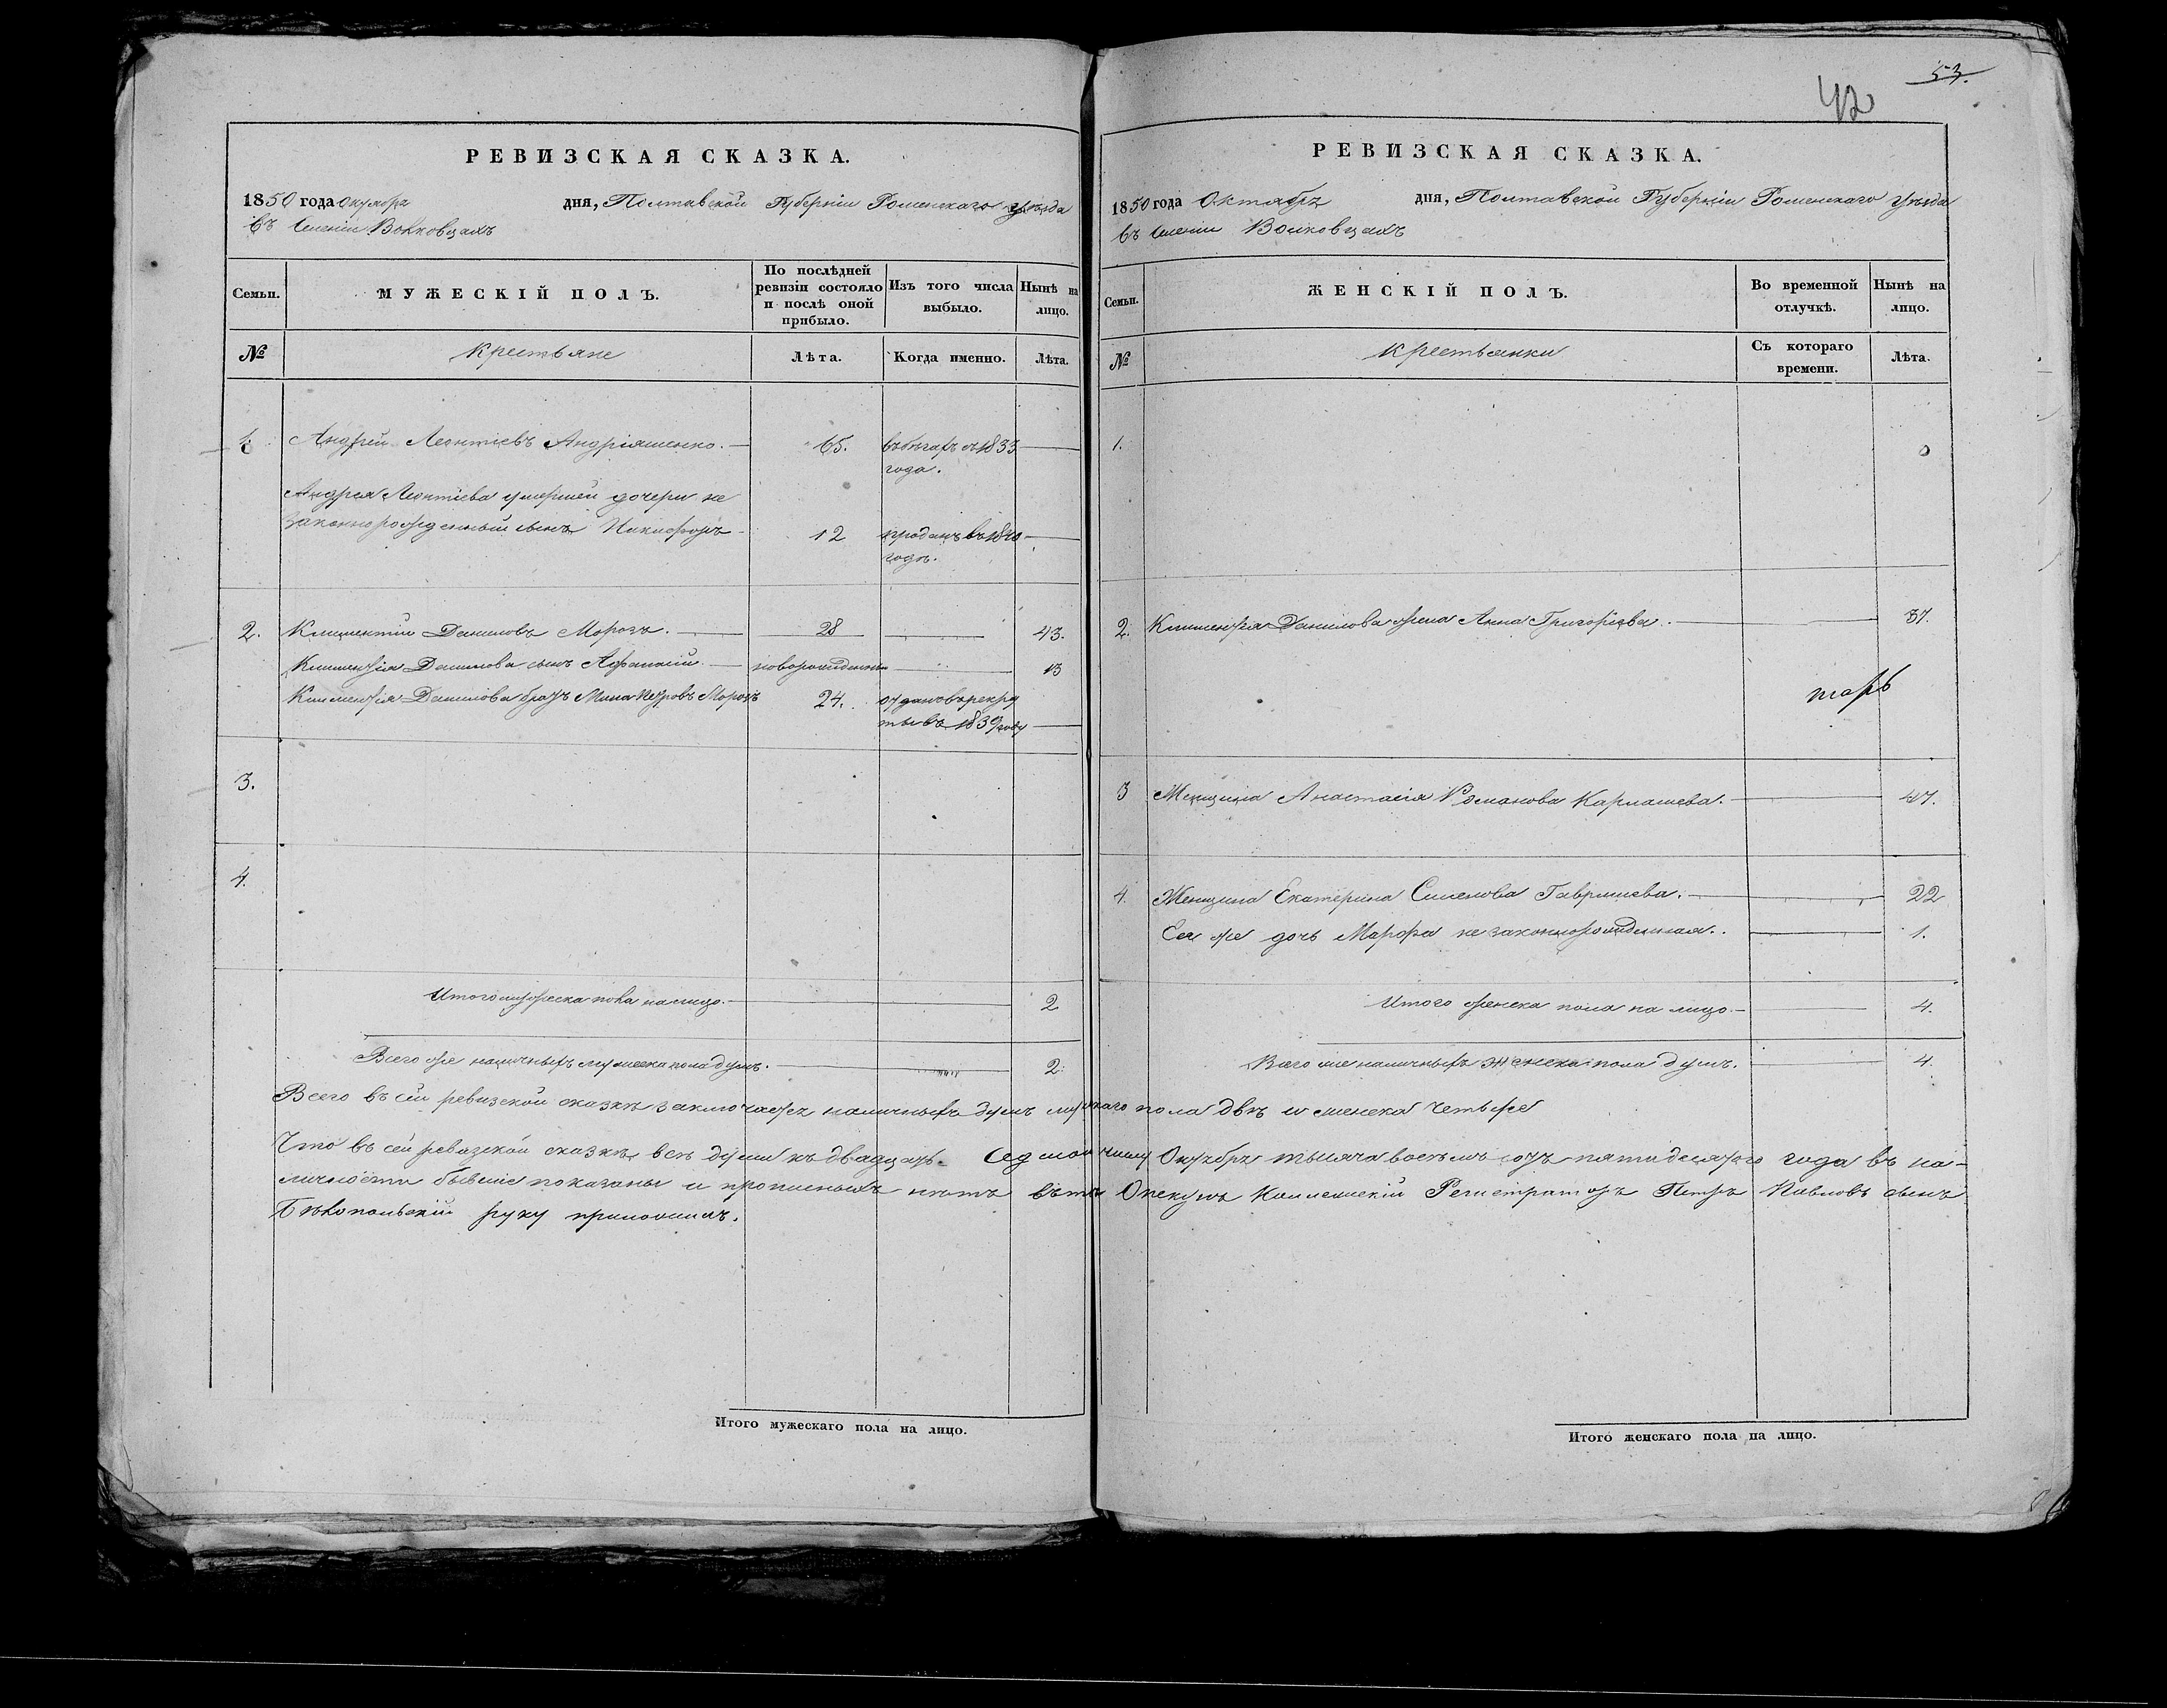 РЕВИЗСКАЯ СКАЗКА.
1850 года октября дня, Полтавской Губерніи Роменскаго уѣзда
въ имѣніи Волковцахъ
Семьи.
МУЖЕСКІЙ ПОЛЪ.
По послѣдней ревизіи состояло и послѣ оной прибыло.
Изъ того числа выбыло.
Нынѣ на лицо.
№
Крестьяне
Лѣта.
Когда именно.
Лѣта.
1. Андрей Леонтіевъ Андріяшенко. 65. въ бѣгахъ съ 1833
года.
Андрея Леонтіева умершей дочери не
законнорожденный сынъ Никифоръ 12 проданъ въ 1840
годѣ.
2. Климентій Даниловъ Морозъ. 28 43.
Климентія Данилова сынъ Афанасій новорожденный 13
Климентія Данилова братъ Мина Петровъ Морозъ 24. отданъ въ рекру
ты въ 1839 году
3.
4.
Итого мужеска пола на лицо. 2
Всего же наличныхъ мужеска пола душъ. 2.
53.
42
РЕВИЗСКАЯ СКАЗКА.
1850 года Октября дня, Полтавской Губерніи Роменскаго уѣзда
въ имѣніи Волковцахъ
Семьи.
ЖЕНСКІЙ ПОЛЪ.
Во временной отлучкѣ.
Нынѣ на лицо.
№
Крестьянки
Съ котораго времени.
Лѣта.
1.
2. Климентія Данилова жена Анна Григоріева. 37.
3 Женщина Анастасія Романова Карпашева. 47.
4. Женщина Екатерина Семенова Гавришева. 22
Ея же дочь Марфа не законнорожденная. 1.
Итого женска пола на лицо. 4.
Всего же наличныхъ женска пола душъ. 4.
Всего въ сей ревизской сказкѣ заключается наличныхъ душъ мужскаго пола двѣ и женска четыре
Что въ сей ревизской сказкѣ всѣ души къ двадцать седмому числу Октября тысяча восемь сотъ пятидесятаго года въ на-
личности бывшіе показаны и прописныхъ нѣтъ въ томъ Опекунъ Коллежскій Регистраторъ Петръ Павловъ сынъ
Бѣлопольскій руку приложилъ.
Итого мужескаго пола на лицо.
Итого женскаго пола на лицо.